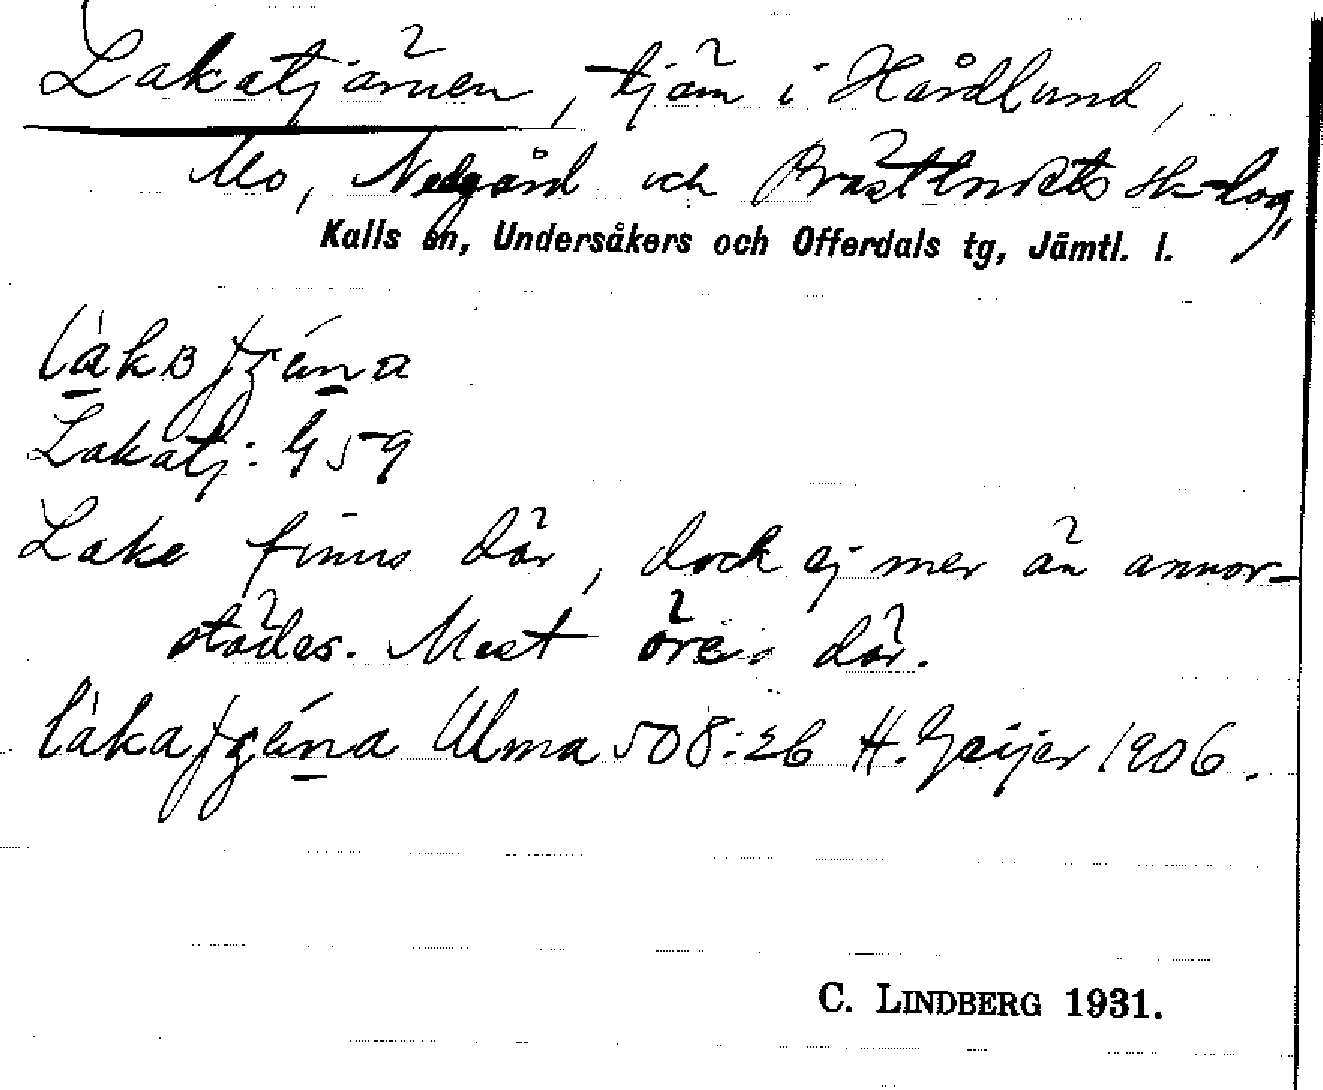 Lakatjärnen, tjärn i Hårdlund,
Mo, Nedgård och Prästbordets sk-lag,
Kalls sn, Undersåkers och Offerdals tg, Jämtl. l.
Lakatj: G 59
Lake finns där, dock ej mer än annor-
städes. Mest ören där.
Ulma 508:26 H. Geijer 1906.
C. LINDBERG 1931.